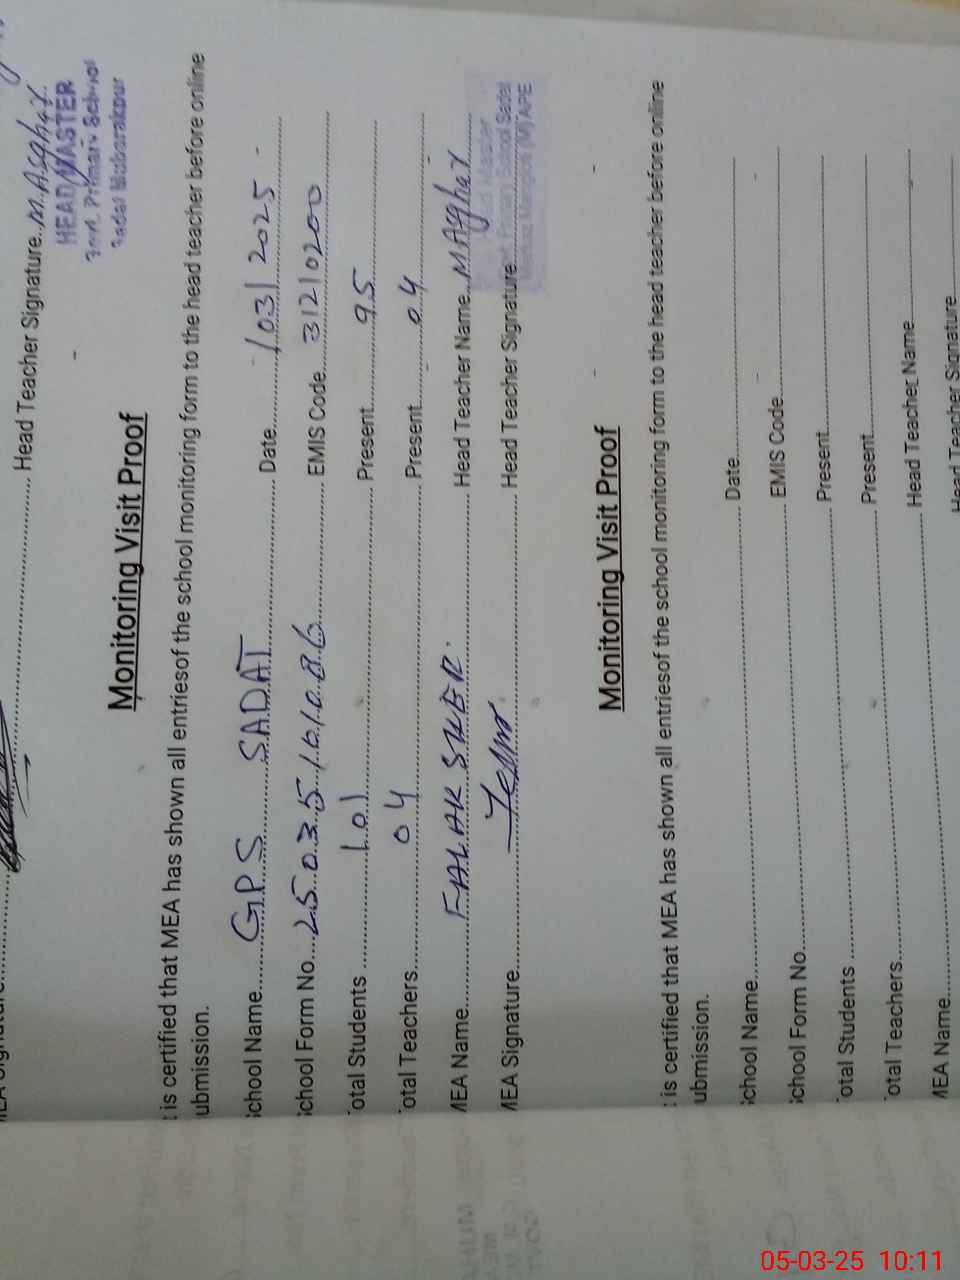 Head Teacher Signature..M.Asghar.
HEAD MASTER
Govt. Primary School
Sadat Mubarakpur
Monitoring Visit Proof
t is certified that MEA has shown all entriesof the school monitoring form to the head teacher before online
ubmission.
chool Name.....G.P.S SADAT.......... Date......../03/2025
chool Form No...25.03.5.10.1.0.8.6........ EMIS Code...31210200
otal Students ........101........ Present........95
otal Teachers........04........ Present........04
MEA Name........FALAK SHER........ Head Teacher Name..M Asghar
MEA Signature........ Head Teacher Signature
Monitoring Visit Proof
t is certified that MEA has shown all entriesof the school monitoring form to the head teacher before online
ubmission.
chool Name........ Date........
chool Form No........ EMIS Code........
otal Students ........ Present........
otal Teachers........ Present........
MEA Name........ Head Teacher Name........
Head Teacher Signature
05-03-25 10:11